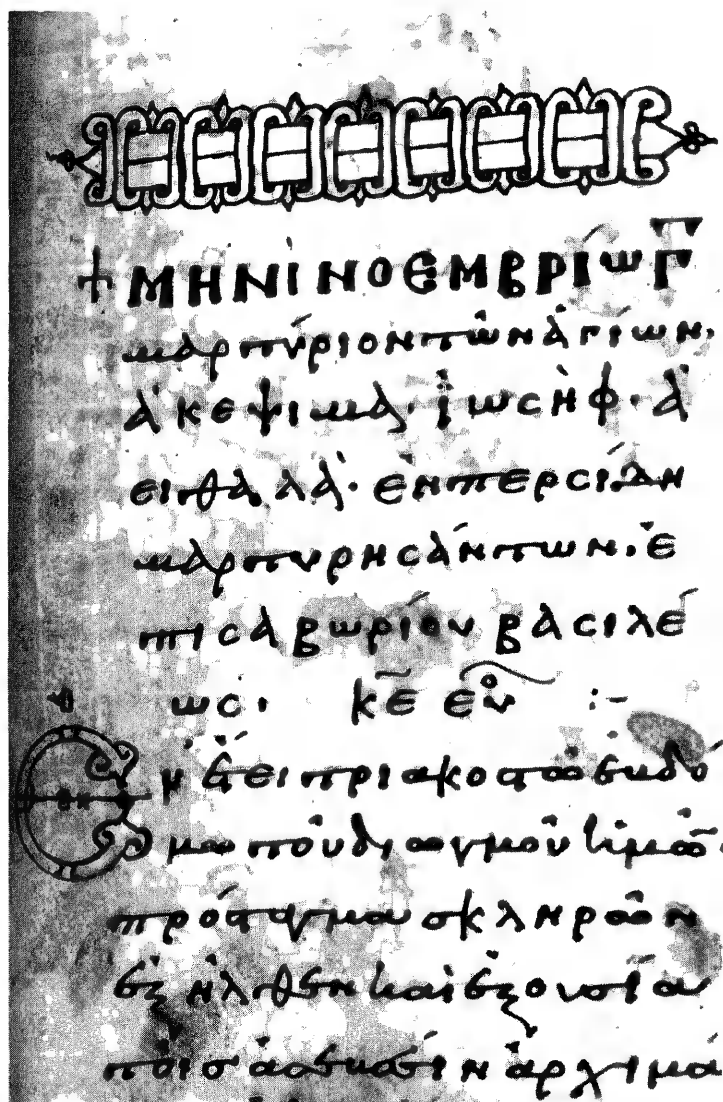 + ΜΗΝὶ ΝΟΕΜΒΡίω Γ̅
μαρτύριον τῶν ἁγίων·
ἀκεψιμᾶ· ἰωσὴφ· ἀ
ειθαλᾶ· ἐν περσίδη
μαρτυρησάντων· ἐ
πι σαβωρίου βασιλέ
ως· κε̅ ευ :-
Εν ἔτει τριακοστῶ ἑβδό
μω τοῦ διωγμοῦ ἡμῶν
πρόσταγμα σκληρὸν
ἐξῆλθεν καὶ ἐξουσία
ἀρχιμά